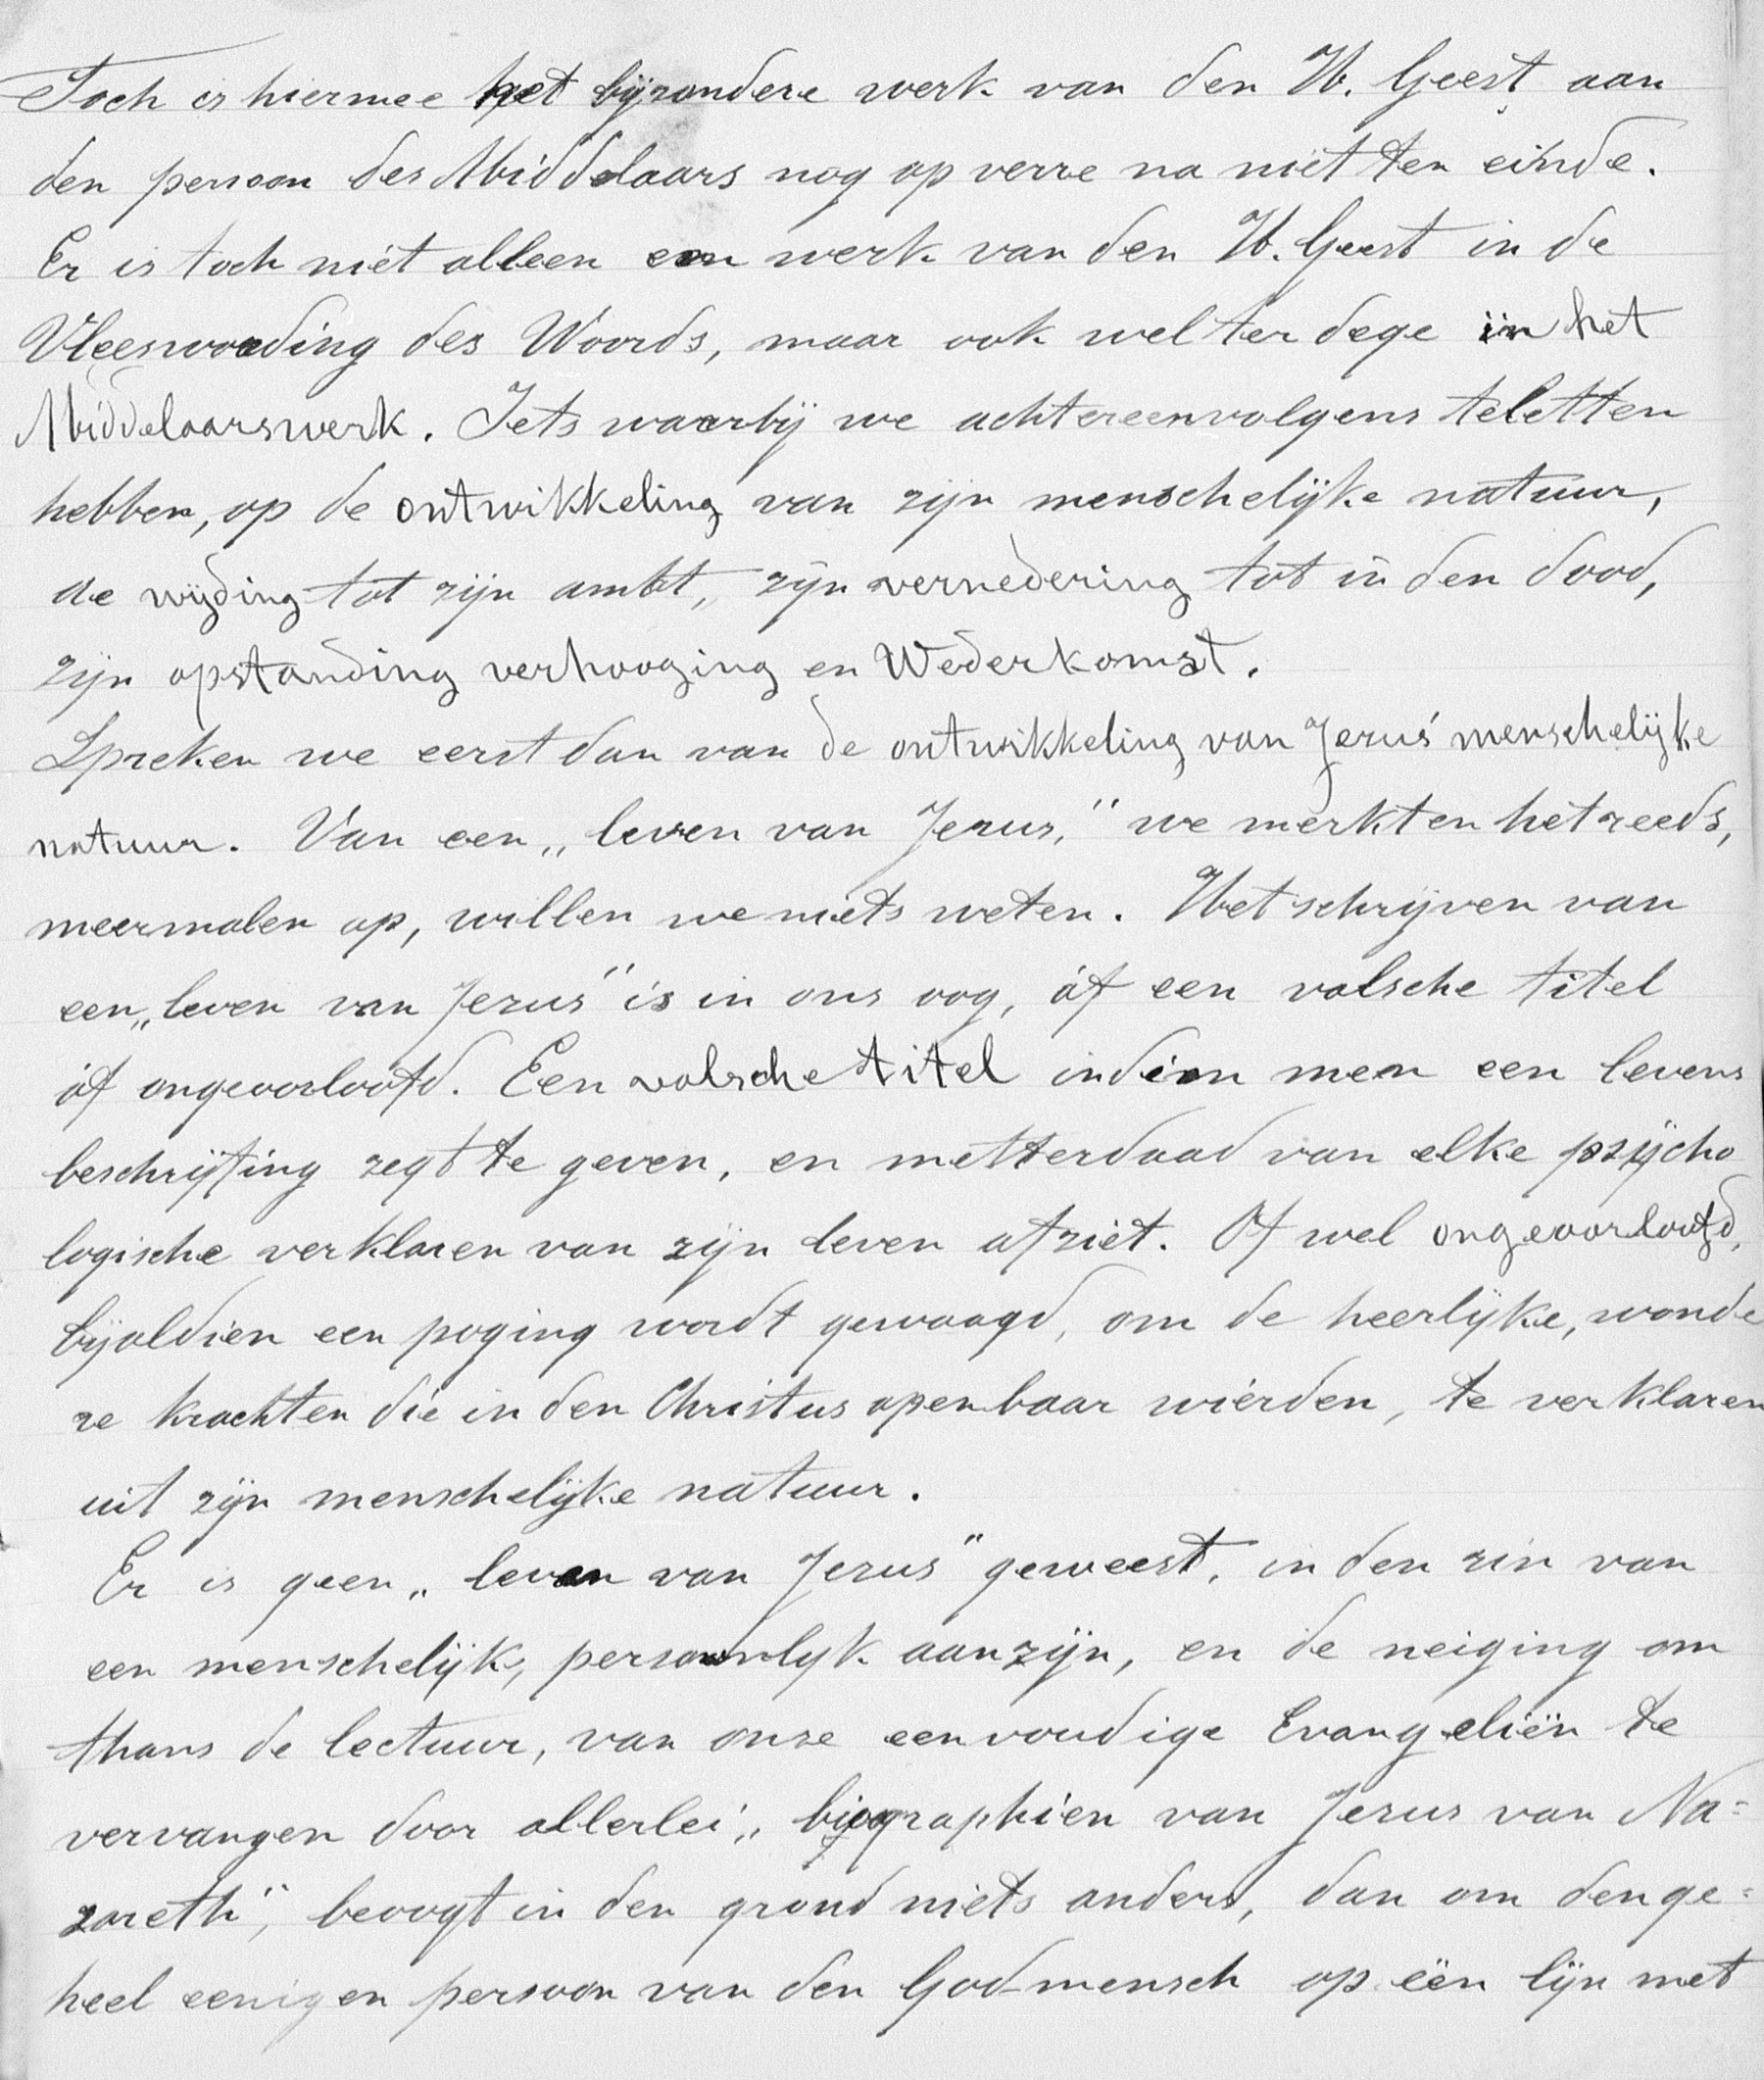 Toch is hiermee het bijzondere werk van den H. Geest aan
den persoon des Middelaars nog op verre na niet ten einde.
Er is toch niet alleen een werk van den H. Geest in de
Vleeswording des Woords, maar ook wel ter dege in het
Middelaarswerk. Iets waarbij we achtereenvolgens te letten
hebben, op de ontwikkeling van zijn menschelijke natuur,
de wijding tot zijn ambt, zijn vernedering tot in den dood,
zijn opstanding verhooging en Wederkomst.
Spreken we eerst dan van de ontwikkeling van Jezus' menschelijke
natuur. Van een „leven van Jezus," we merkten het reeds,
meermalen op, willen we niets weten. Het schrijven van
een „leven van Jezus" is in ons oog, óf een valsche titel
óf ongeoorloofd. Een valsche titel indien men een levens
beschrijfing zegt te geven, en metterdaad van elke psycho
logische verklaren van zijn leven afziet. Of wel ongeoorloofd,
bijaldien een poging wordt gewaagd, om de heerlijke, wonde
re krachten die in den Christus openbaar wierden, te verklaren
uit zijn menschelijke natuur.
Er is geen „leven van Jezus" geweest, in den zin van
een menschelijk, persoonlijk aanzijn, en de neiging om
thans de lectuur, van onze eenvoudige Evangeliën te
vervangen door allerlei „biographien van Jezus van Na=
zareth", beoogt in den grond niets anders, dan om den ge=
heel eenigen persoon van den God-mensch op één lijn met